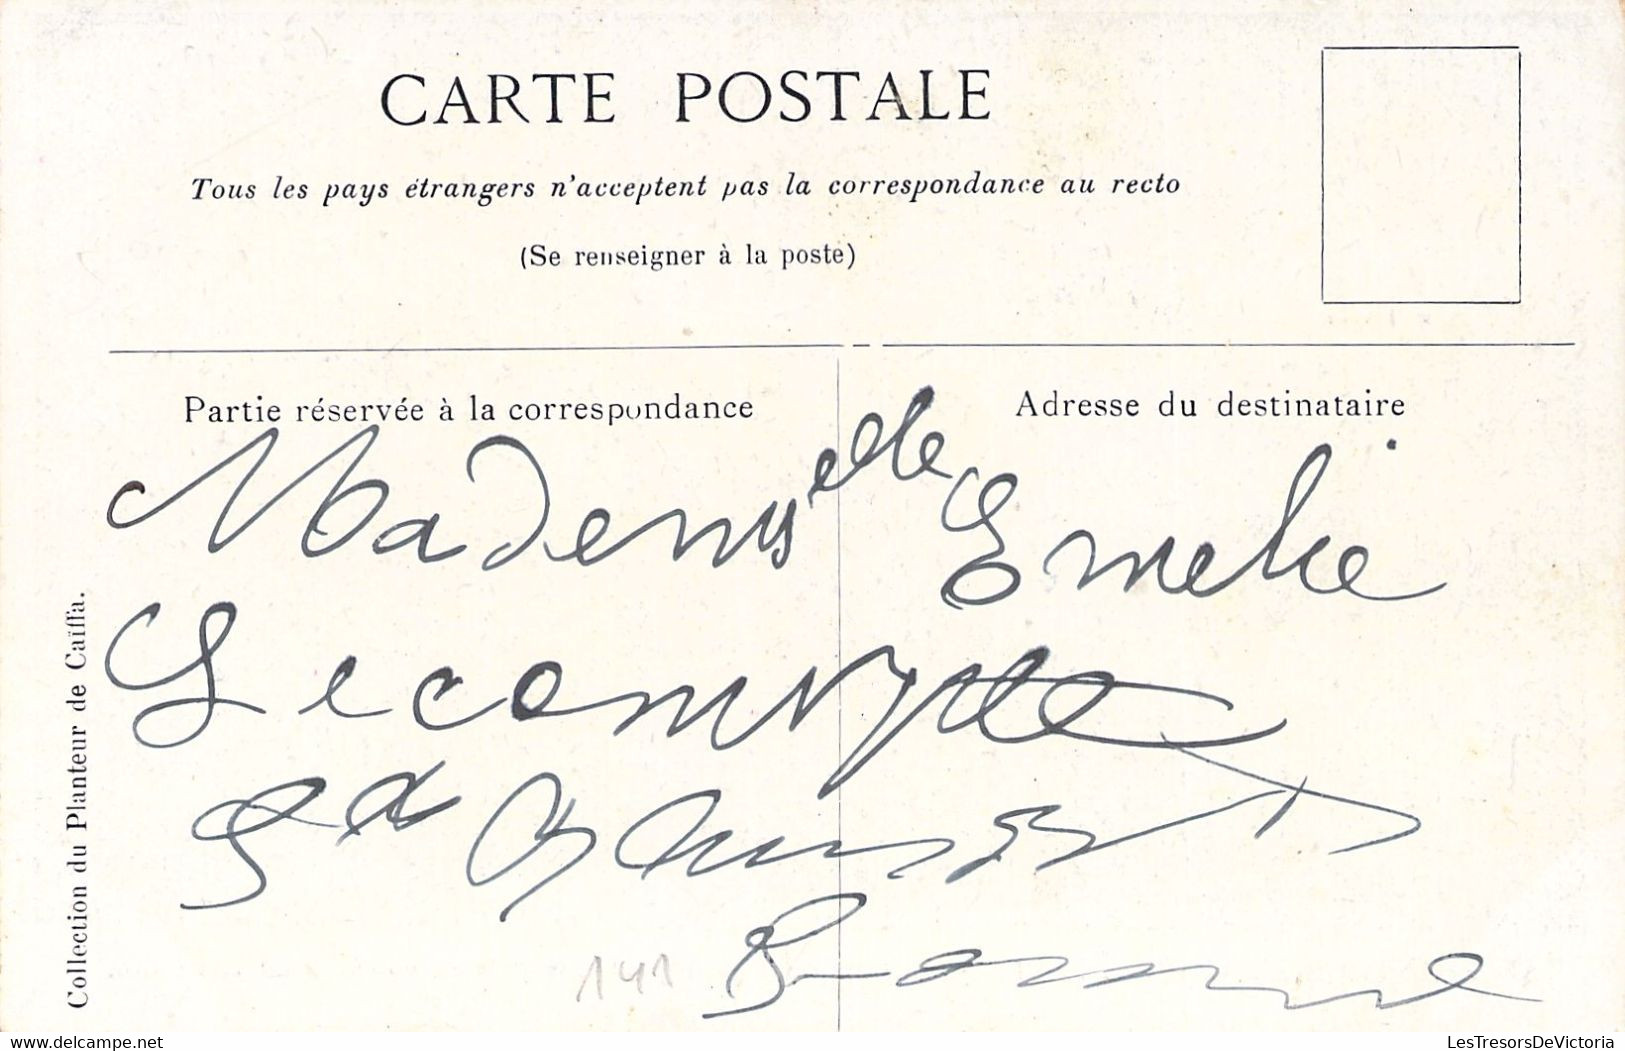 CARTE POSTALE
Tous les pays étrangers n'acceptent pas la correspondance au recto
(Se renseigner à la poste)
Partie réservée à la correspondance
Adresse du destinataire
Mademoiselle Emelie
Lecompte
St
Somme
141
Collection du Planteur de Caïffa.
delcampe.net
LesTresorsDeVictoria